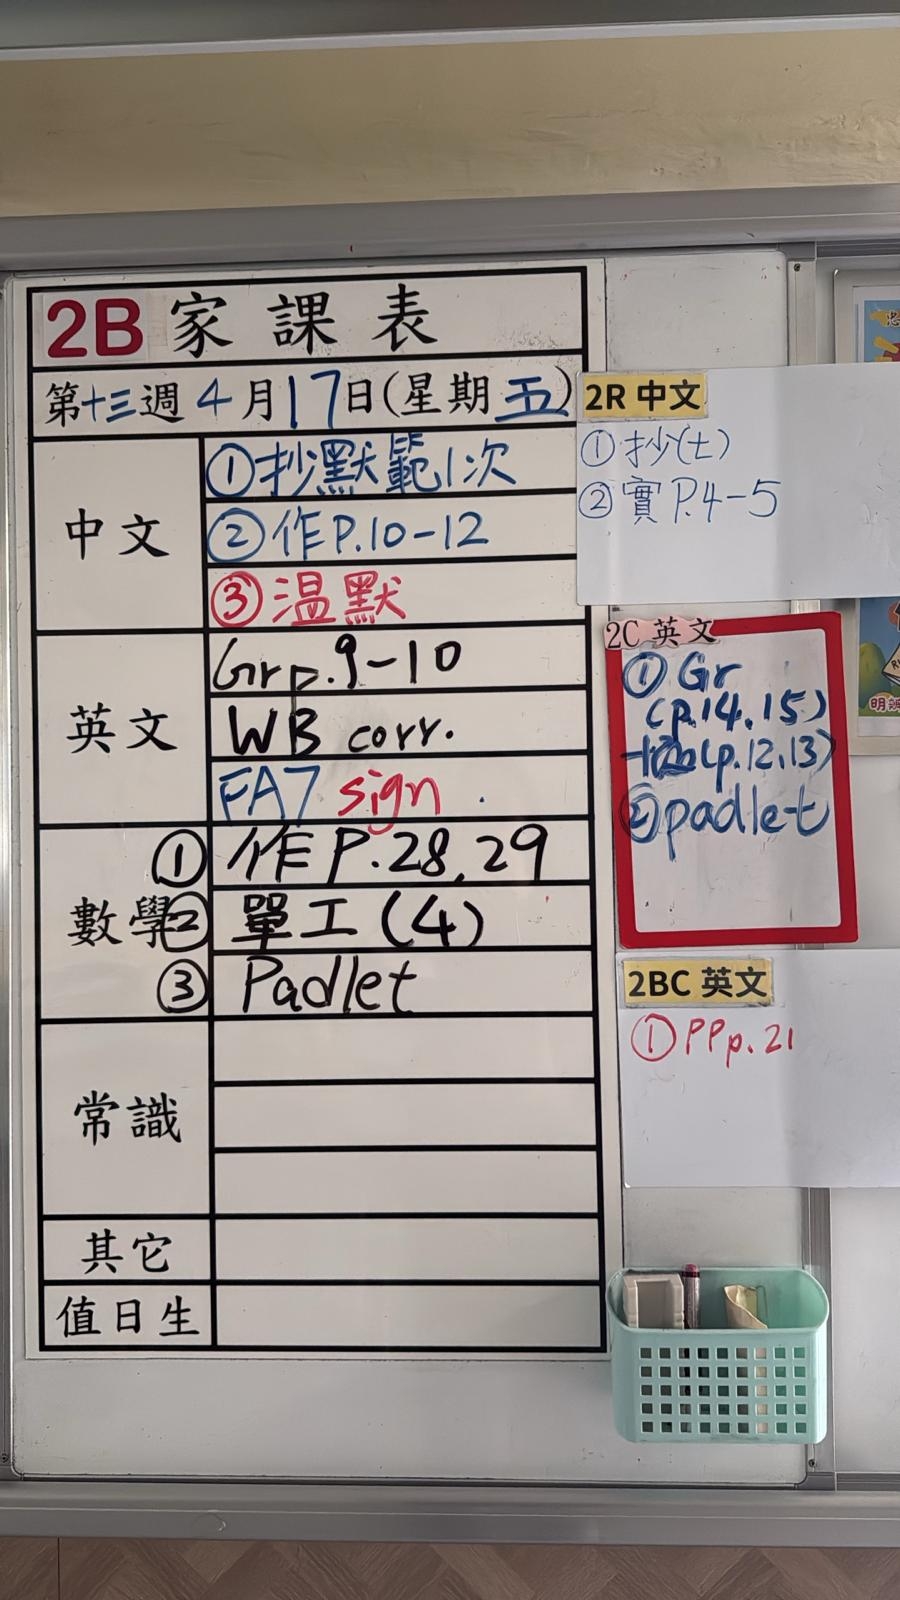 2B 家課表
第十三週 4月17日(星期五)
中文
①抄默範1次
②作P.10-12
③温默
英文
Gr p.9-10
WB corr.
FA7 sign.
數學
① 作P.28,29
② 單工(4)
③ Padlet
常識
其它
值日生
2R 中文
①抄(士)
②實P.4-5
2C 英文
①Gr
(p.14.15)
(p.12,13)
②padlet
2BC 英文
①PP p.21